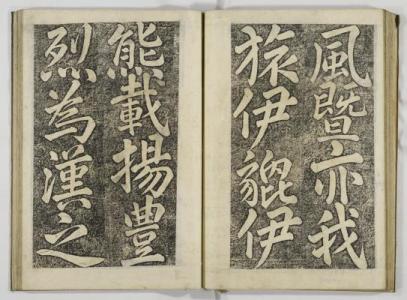 風暨亦我
旅伊貔伊
熊載揚豊
烈為漢之